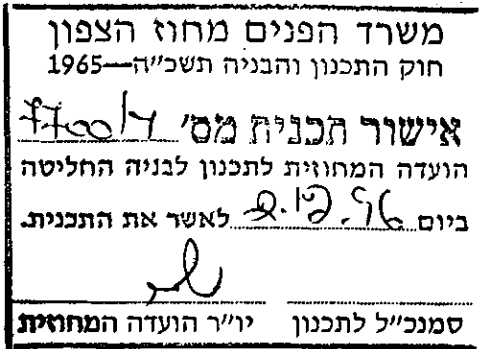 משרד הפנים מחוז הצפון
חוק התכנון והבניה תשכ״ה—1965
אישור תכנית מס׳ ג/7700
הועדה המחוזית לתכנון לבניה החליטה
ביום 2.12.96 לאשר את התכנית.
סמנכ״ל לתכנון יו״ר הועדה המחוזית